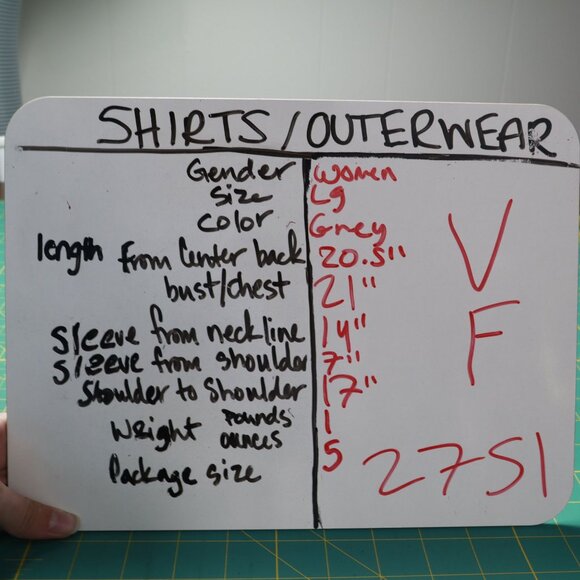 SHIRTS/OUTERWEAR
Gender women
size Lg
color Grey
length from Center back 20.5"
bust/chest 21"
Sleeve from neckline 14"
Sleeve from shoulder 7"
Shoulder to Shoulder 17"
Weight Pounds 1
ounces 5
Package size
V
F
2751